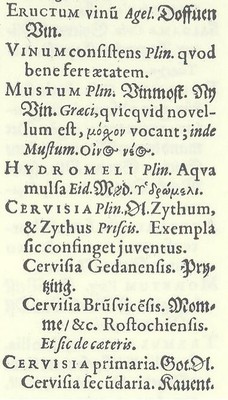 ERUCTUM vinũ Agel. Doffuen
Vin.
VINUM consistens Plin. qvod
bene fert ætatem.
MUSTUM Plin. Vinmost. Ny
Vin. Græci, qvicqvid novel-
lum est, μόχον vocant; inde
Mustum. Οἶνος νέος.
HYDROMELI Plin. Aqva
mulsa Eid. Mød. Ὑδρόμελι.
CERVISIA Plin. Øl. Zythum,
& Zythus Priscis. Exempla
sic confinget juventus.
Cervisia Gedanensis. Pry-
tzing.
Cervisia Brũsvicẽsis. Mom-
me/ &c. Rostochiensis.
Et sic de cæteris.
CERVISIA primaria. Got Øl.
Cervisia secũdaria. Kavent.